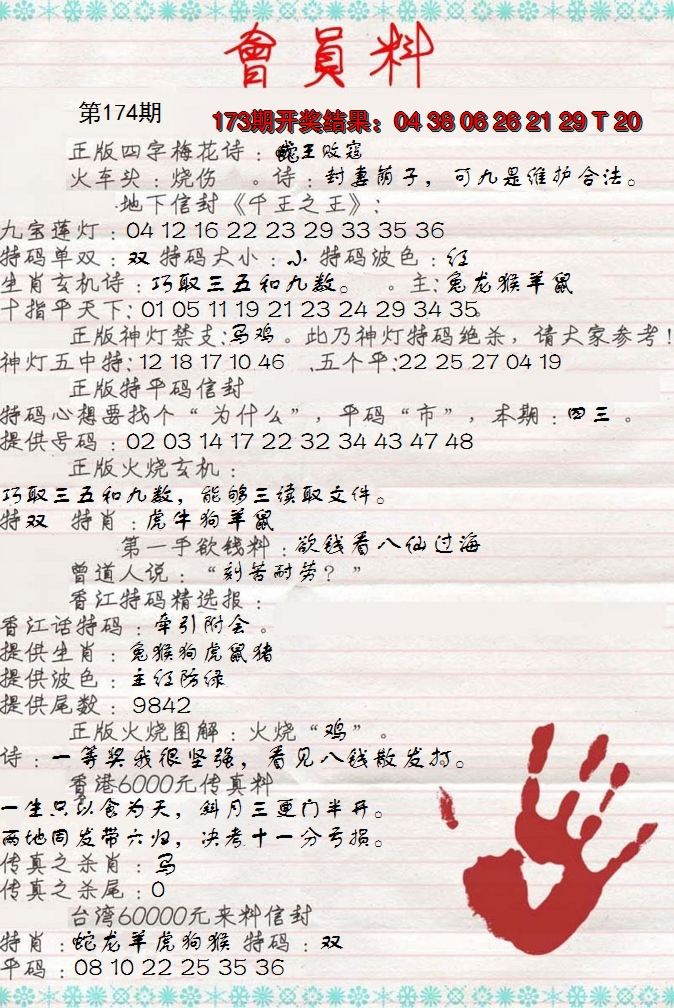 會員料
第174期
173期开奖结果：04 38 06 26 21 29 T 20
正版四字梅花诗：蛇王败寇
火车头：烧伤 。诗：封妻荫子，可九是维护合法。
地下信封《千王之王》：
九宝莲灯：04 12 16 22 23 29 33 35 36
特码单双：双 特码大小：小 特码波色：红
生肖玄机诗：巧取三五和九数。 。主：兔龙猴羊鼠
十指平天下：01 05 11 19 21 23 24 29 34 35。
正版神灯禁支：马鸡。此乃神灯特码绝杀，请大家参考！
神灯五中特：12 18 17 10 46 .五个平：22 25 27 04 19
正版特平码信封
特码心想要找个“为什么”，平码“市”，本期：四三。
提供号码：02 03 14 17 22 32 34 43 47 48
正版火烧玄机：
巧取三五和九数，能够三读取文件。
特双 特肖：虎牛狗羊鼠
第一手欲钱料：欲钱看八仙过海
曾道人说：“刻苦耐劳？”
香江特码精选报：
香江话特码：牵引附会。
提供生肖：兔猴狗虎鼠猪
提供波色：主红防绿
提供尾数：9842
正版火烧图解：火烧“鸡”。
诗：一等奖我很坚强，看见八钱散发打。
香港6000元传真料
一生只以食为天，斜月三更门半开。
两地同发带六归，决考十一分亏损。
传真之杀肖：马
传真之杀尾：0
台湾60000元来料信封
特肖：蛇龙羊虎狗猴 特码：双
平码：08 10 22 25 35 36